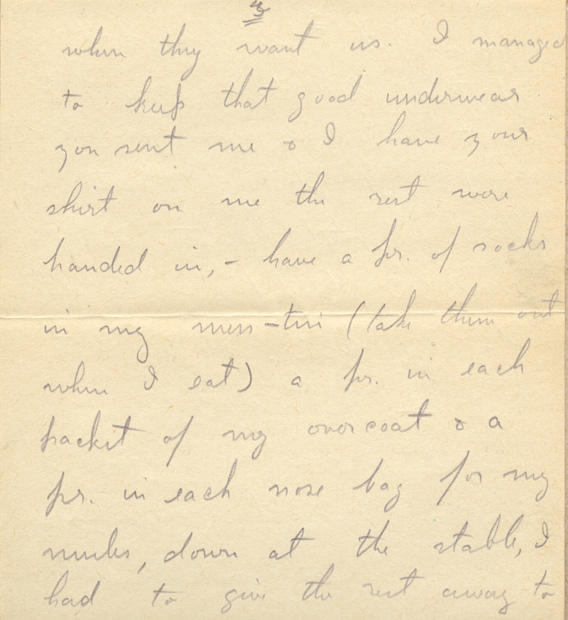 3
when they want us. I managed
to keep that good underwear
you sent me & I have your
shirt on me the rest were
handed in, - have a pr. of socks
in my mess-tin (take them out
when I eat) a pr. in each
packet of my overcoat & a
pr. in each nose bag for my
mules, down at the stable, I
had to give the rest away to